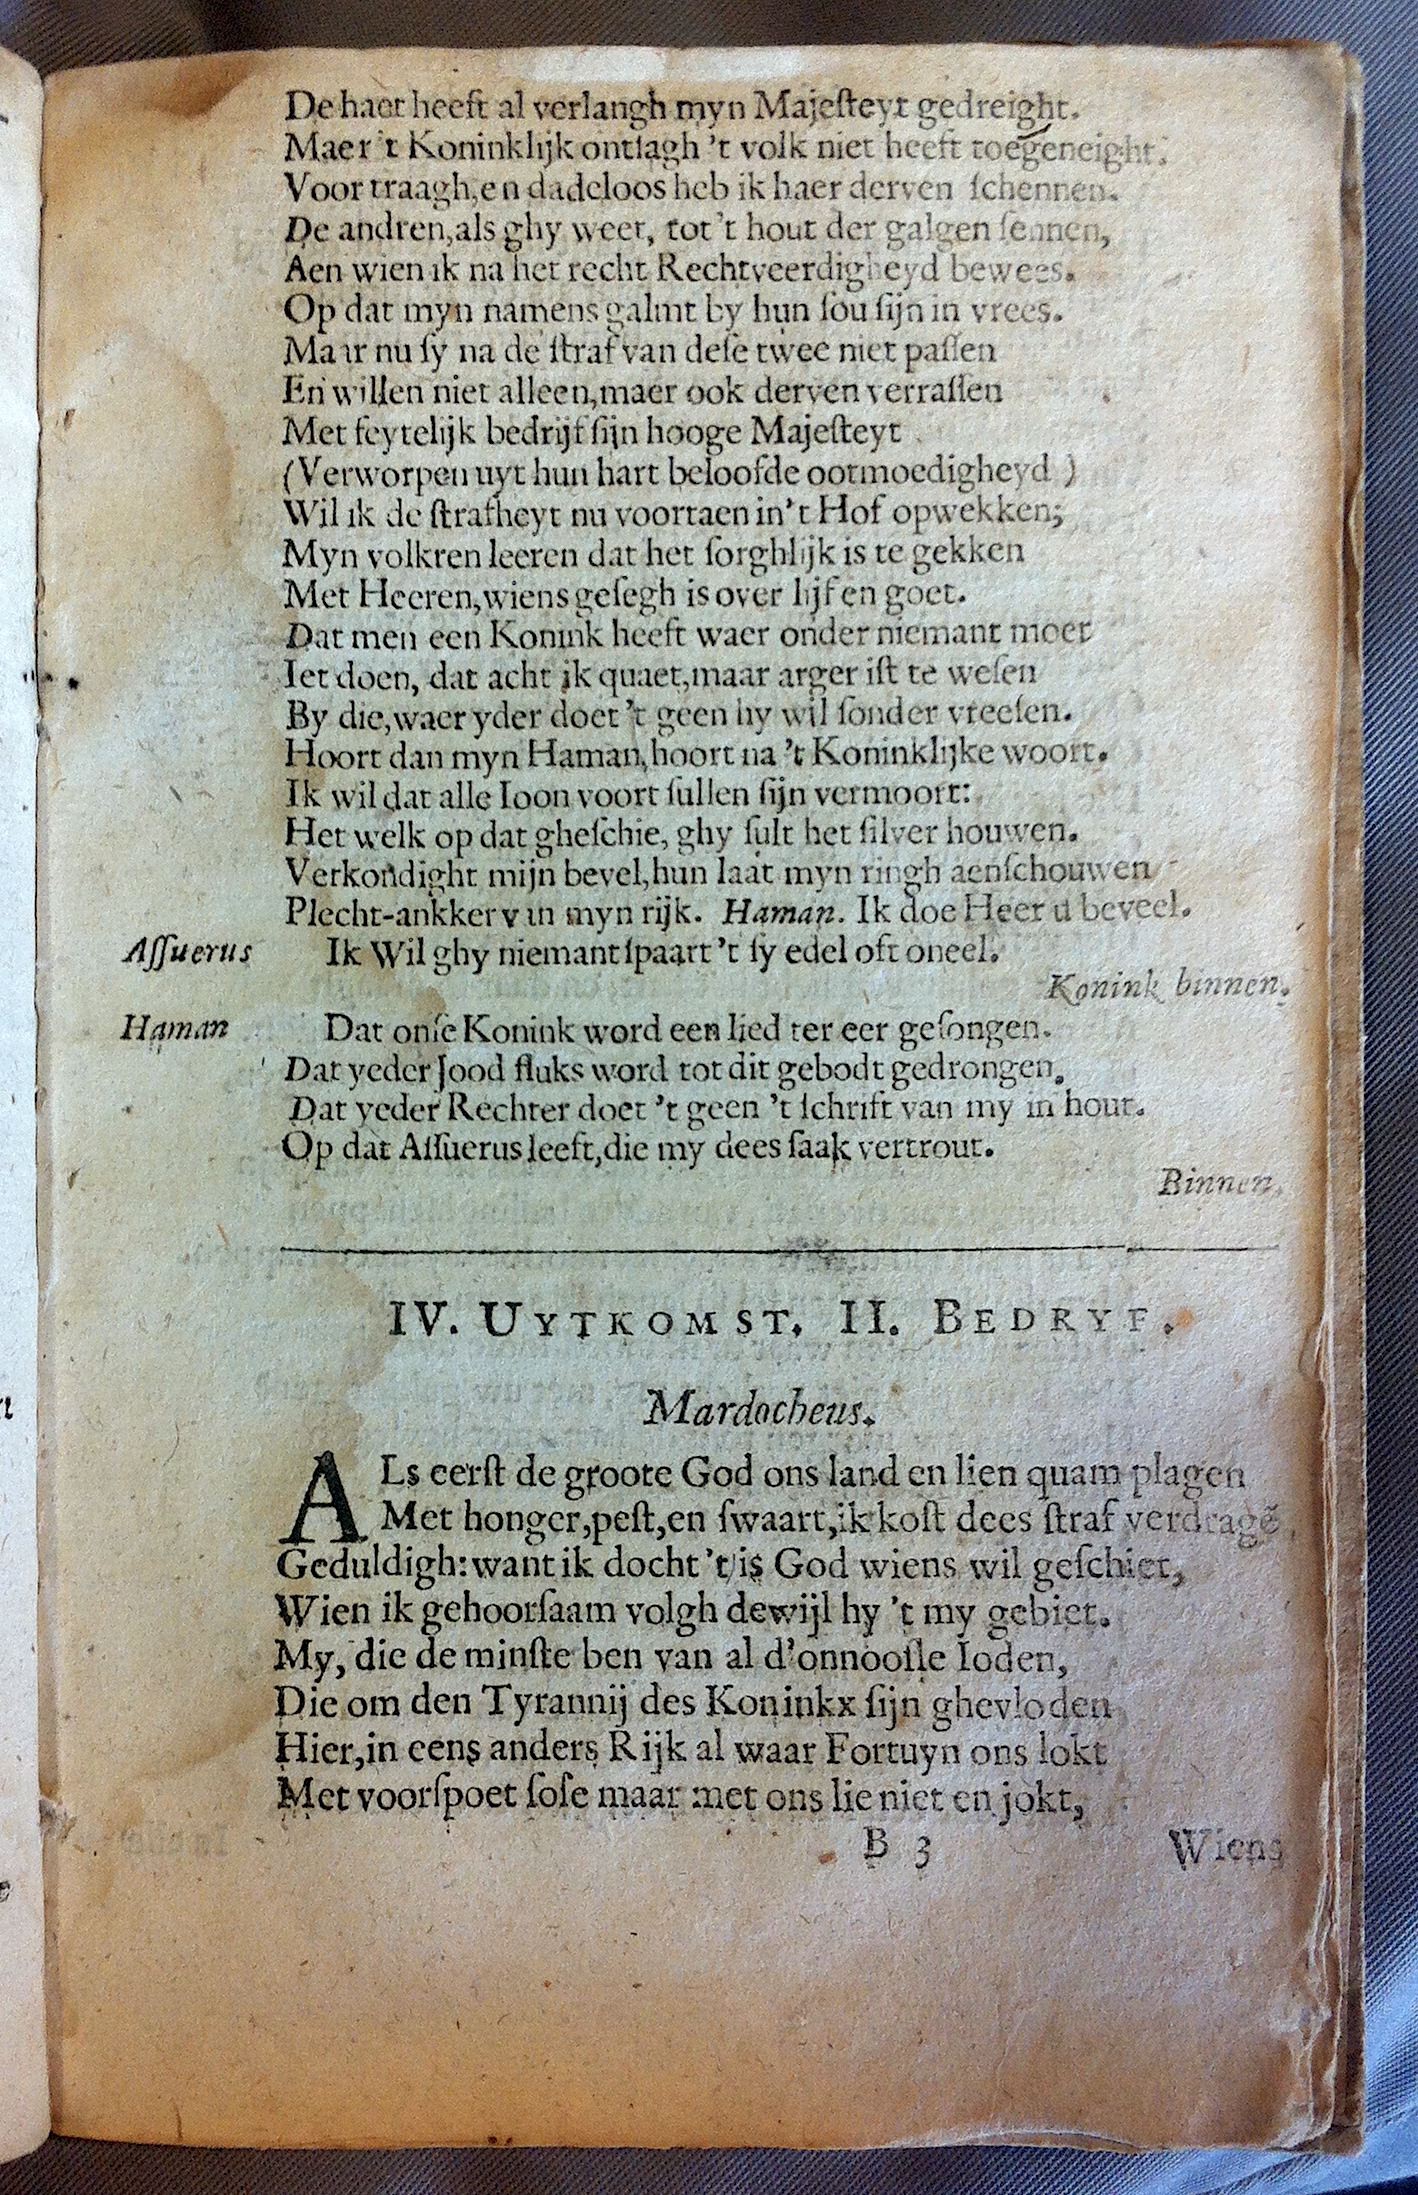 De haet heeft al verlangh myn Majeſteyt gedreight.
Maer 't Koninklijk ontſagh 't volk niet heeft toegeneight.
Voor traagh, en dadeloos heb ik haer derven ſchennen.
De andren, als ghy weet, tot 't hout der galgen ſennen,
Aen wien ik na het recht Rechtveerdigheyd bewees.
Op dat myn namens galmt by hun ſou ſijn in vrees.
Maar nu ſy na de ſtraf van deſe twee niet paſſen
En willen niet alleen, maer ook derven verraſſen
Met feytelijk bedrijf ſijn hooge Majeſteyt
(Verworpen uyt hun hart beloofde ootmoedigheyd )
Wil ik de ſtrafheyt nu voortaen in 't Hof opwekken;
Myn volkren leeren dat het ſorghlijk is te gekken
Met Heeren, wiens geſegh is over lijf en goet.
Dat men een Konink heeft waer onder niemant moet
Iet doen, dat acht ik quaet, maar arger iſt te weſen
By die, waer yder doet 't geen hy wil ſonder vreeſen.
Hoort dan myn Haman, hoort na 't Koninklijke woort.
Ik wil dat alle Ioon voort ſullen ſijn vermoort:
Het welk op dat gheſchie, ghy ſult het ſilver houwen.
Verkondight mijn bevel, hun laat myn ringh aenſchouwen
Plecht-ankker v in myn rijk. Haman. Ik doe Heer u beveel.
Aſſuerus Ik Wil ghy niemant ſpaart 't ſy edel oft oneel.
Konink binnen.
Haman Dat onſe Konink word een lied ter eer geſongen.
Dat yeder Jood fluks word tot dit gebodt gedrongen.
Dat yeder Rechter doet 't geen 't ſchrift van my in hout.
Op dat Aſſuerus leeft, die my dees ſaak vertrout.
Binnen.
IV. UYTKOMST. II. BEDRYF.
Mardocheus.
ALs eerſt de groote God ons land en lien quam plagen
Met honger, peſt, en ſwaart, ik koſt dees ſtraf verdragẽ
Geduldigh: want ik docht 't is God wiens wil geſchiet,
Wien ik gehoorſaam volgh dewijl hy 't my gebiet.
My, die de minſte ben van al d'onnooſle Ioden,
Die om den Tyrannij des Koninkx ſijn ghevloden
Hier, in eens anders Rijk al waar Fortuyn ons lokt
Met voorſpoet ſoſe maar met ons lie niet en jokt,
B 3 Wiens